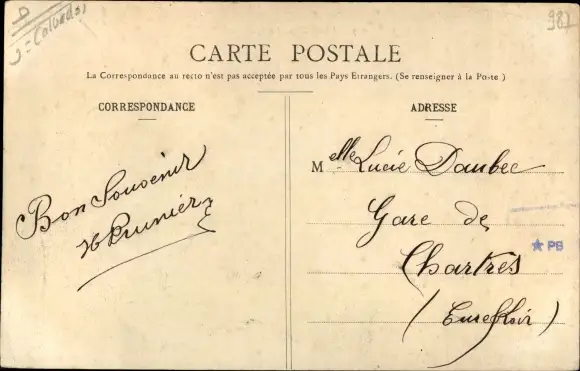 987
CARTE POSTALE
La Correspondance au recto n'est pas acceptée par tous les Pays Etrangers. (Se renseigner à la Poste)
CORRESPONDANCE
Bon Souvenir
H Prunier
ADRESSE
Melle Lucie Daubec
Gare de
Chartres
(Eure & Loir)
PS